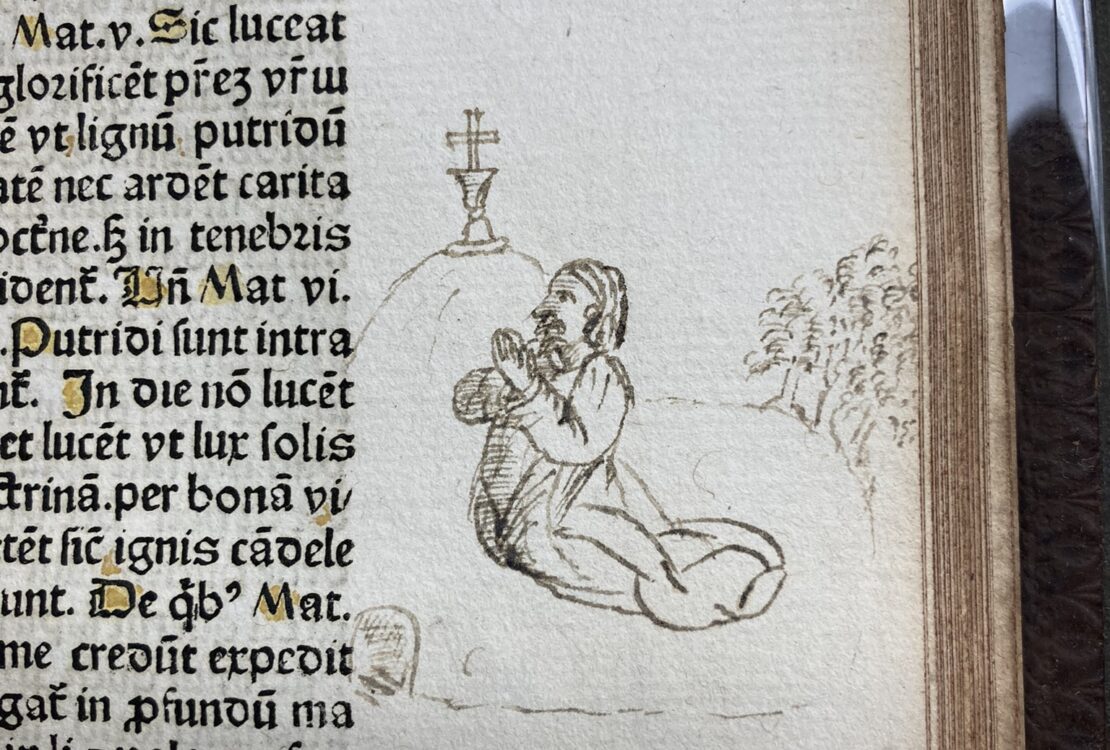 Mat.v. Sic luceat
glorificēt pr̄eꝫ vr̄ɯ
ē vt lignū putridū
atē nec ardēt carita
octrne.ẞ in tenebris
ident̄. Un̄ Mat vi.
.Putridi ſunt intra
nt̄. In die nō lucēt
et lucēt vt lux ſolis
ctrinā.per bonā vi/
tēt ſic̄ ignis cādele
unt. De q̇bꝰ Mat.
me credūt expedit
gat̄ in ꝓfundū ma